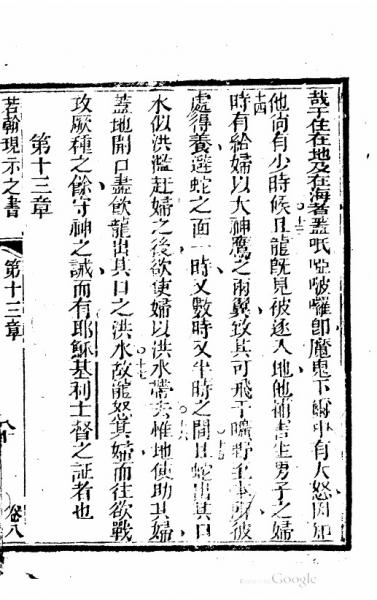 哉于住在地及在海者蓋呧啞啵囉即魔鬼下爾中有大怒因知
他尚有少時候且龍既見被逐入地他捕害生男子之婦
十四
時有給婦以大神鷹之兩翼致其可飛于曠野至本所彼
處得養避蛇之面一時又數時又半時之間且蛇出其口
水似洪濫赶婦之後欲使婦以洪水帶去惟地使助其婦
蓋地開口盡飲龍出其口之洪水故龍怒其婦而往欲戰
攻厥種之餘守神之誡而有耶穌基利士督之証者也
第十三章
若翰現示之書
第十三章
卷八
Google